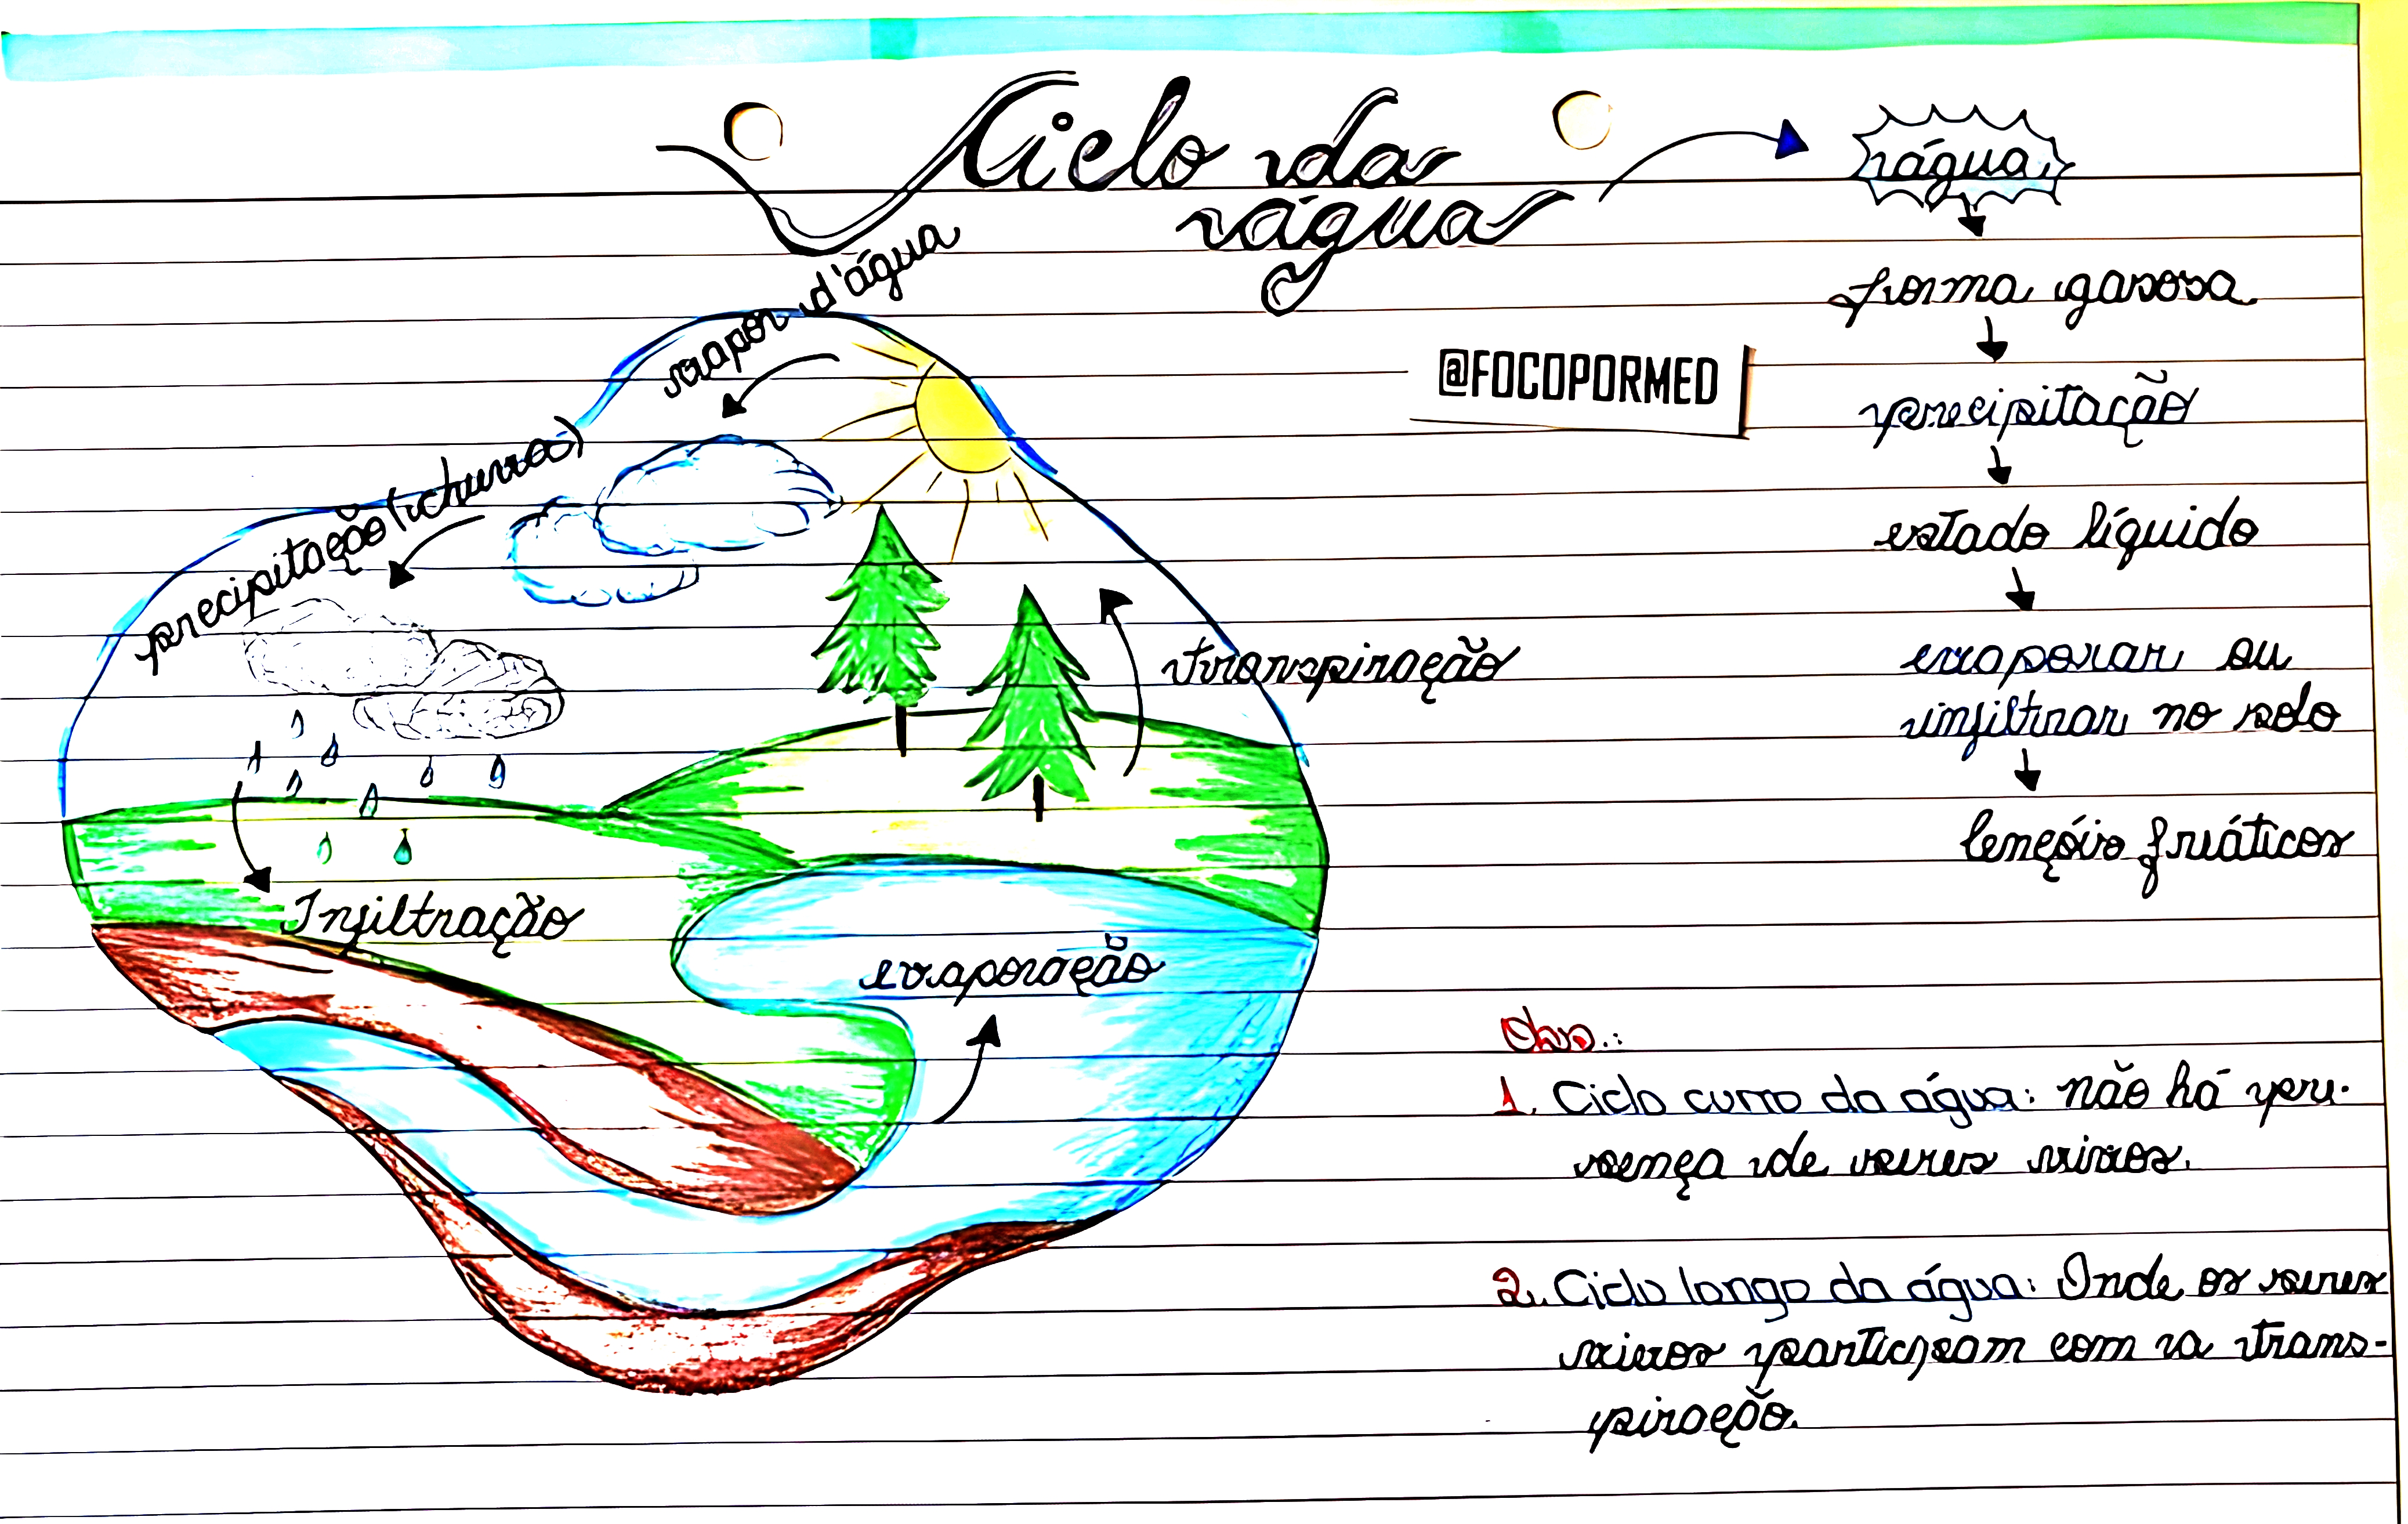 Ciclo da
água
água
forma gasosa
precipitação
estado líquido
evaporar ou
infiltrar no solo
lençóis freáticos
@FOCOPORMED
vapor d'água
precipitação (chuva)
transpiração
Infiltração
evaporação
Obs.:
1. Ciclo curto da água: não há pre-
sença de seres vivos.
2. Ciclo longo da água: Onde os seres
vivos participam com a trans-
piração.